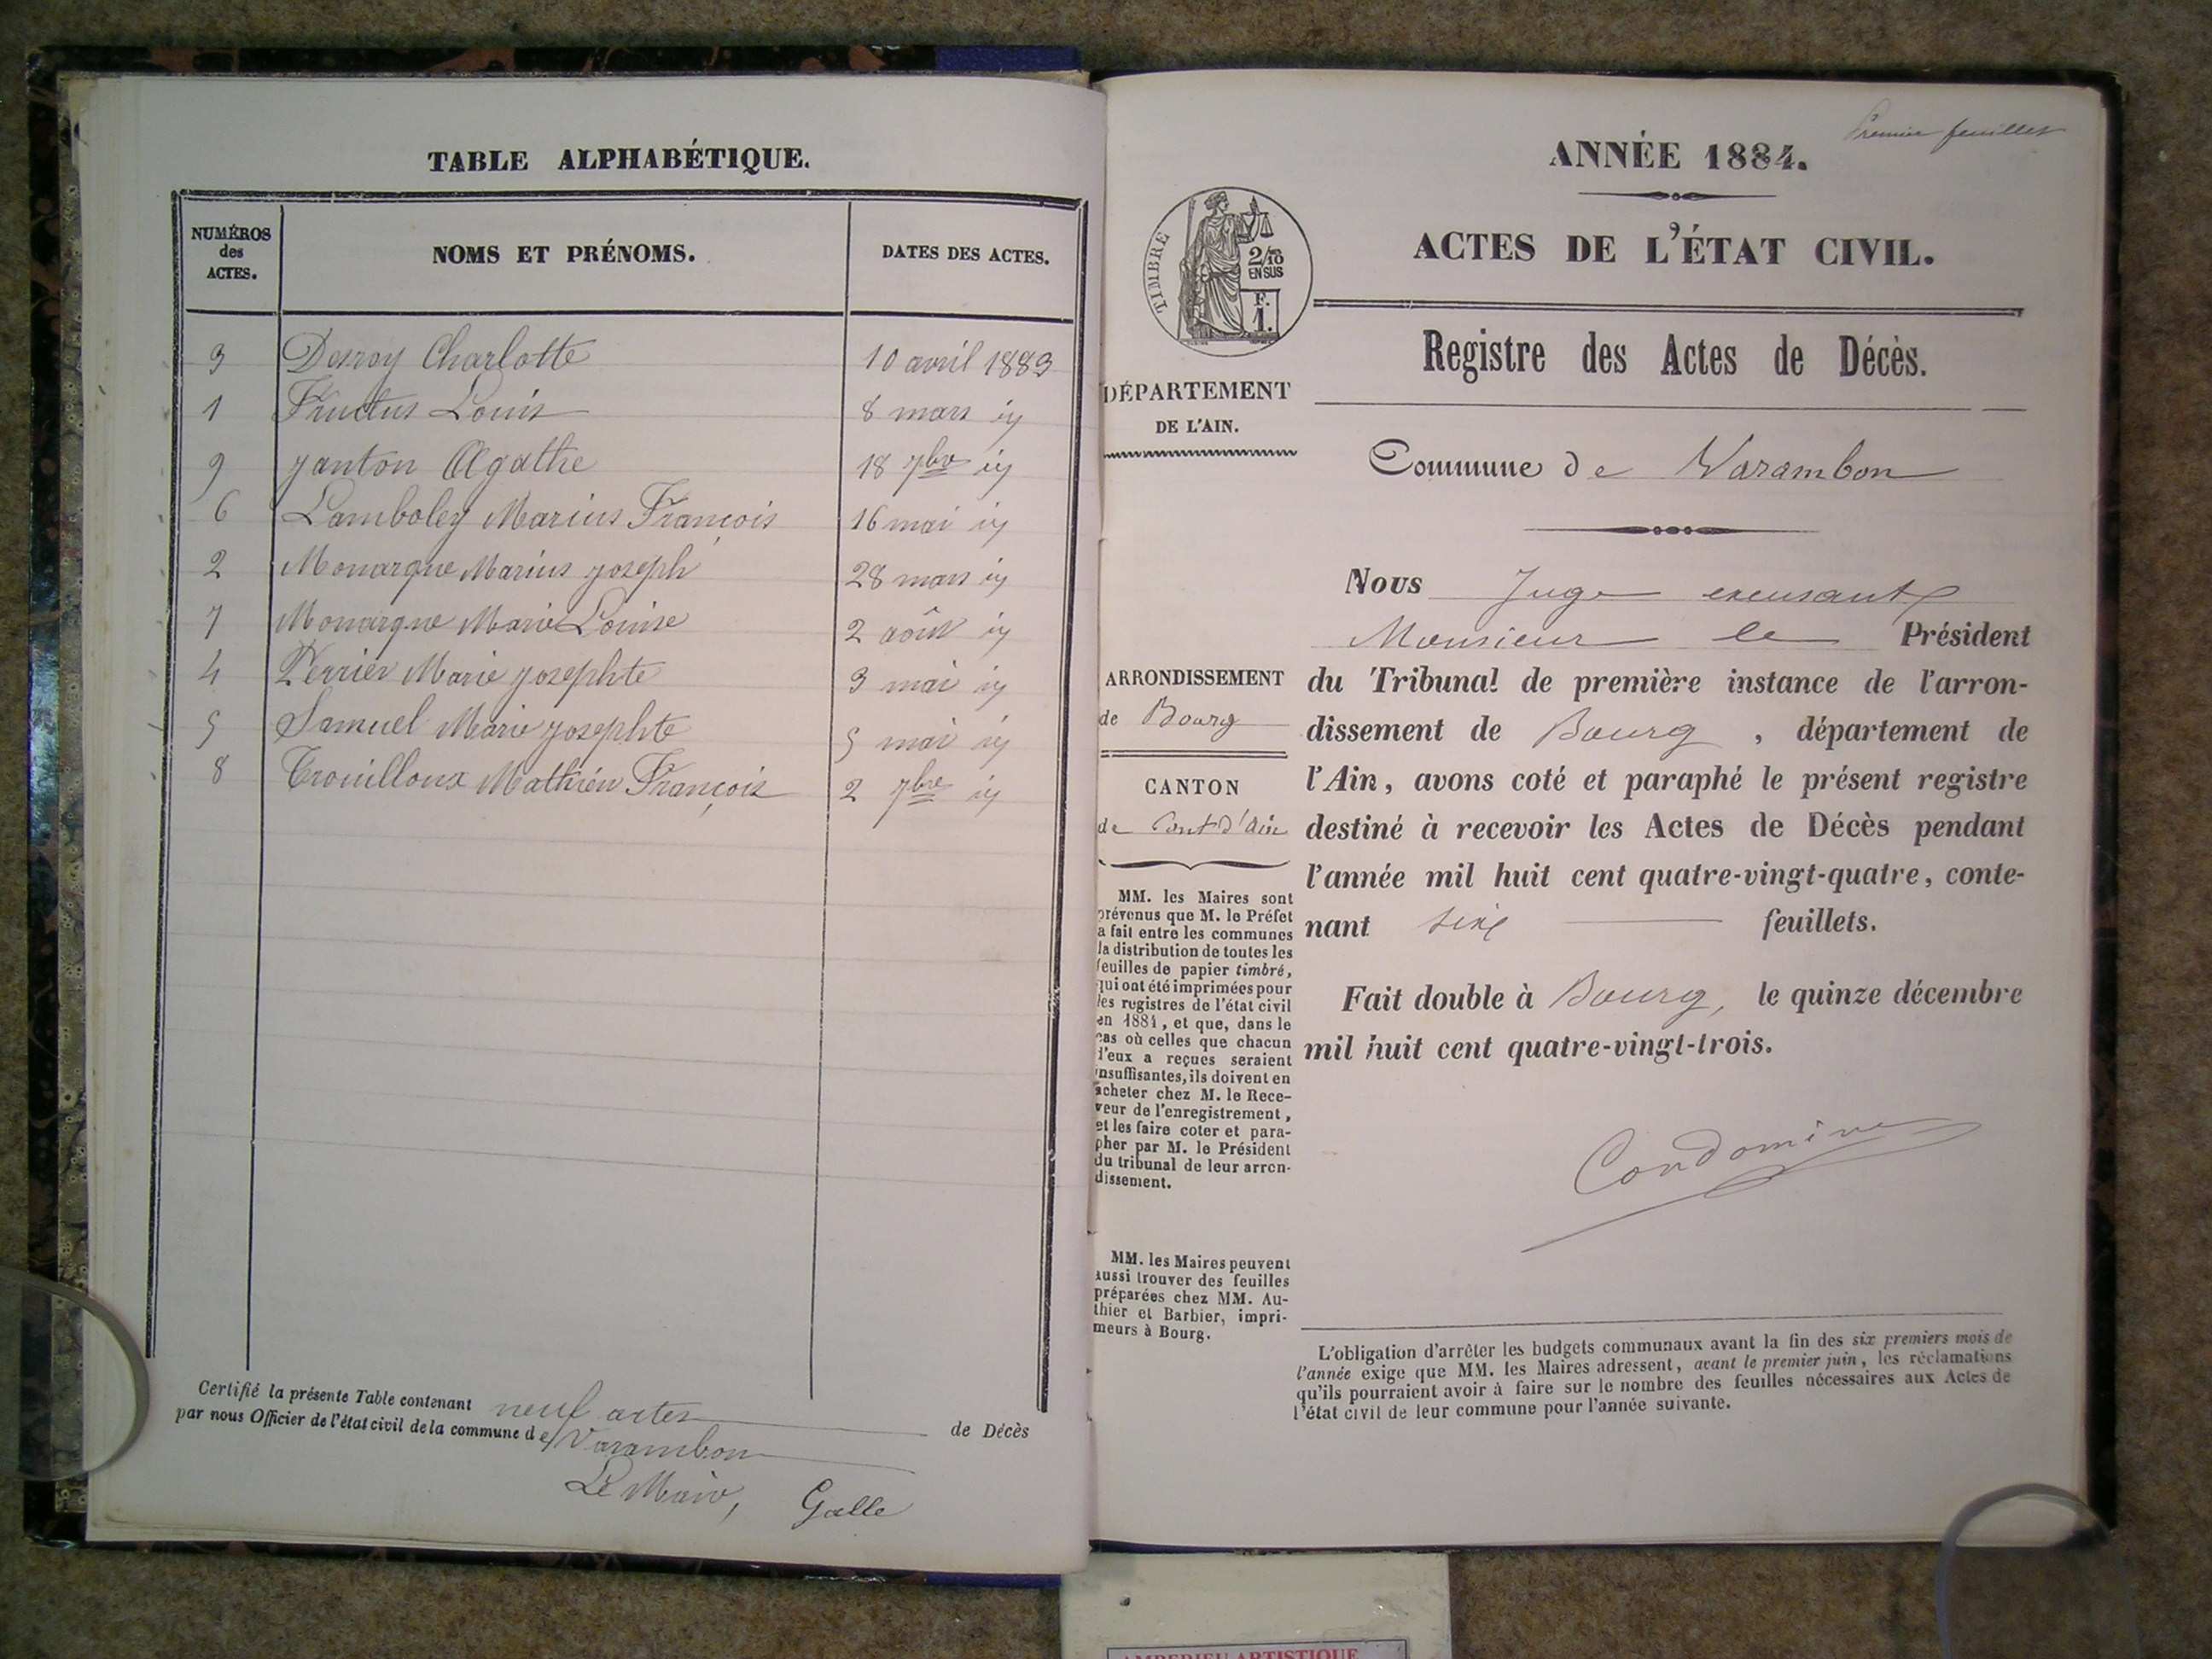 TABLE ALPHABÉTIQUE.
NUMÉROS des ACTES.
NOMS ET PRÉNOMS.
DATES DES ACTES.
3 Desroy Charlotte 10 avril 1883
1 Fructus Louis 8 mars id
9 Janton Agathe 18 7bre id
6 Lamboley Marius François 16 mai id
2 Monarque Marius Joseph 28 mars id
7 Monarque Marie Louise 2 août id
4 Perrier Marie Josephte 3 mai id
5 Samuel Marie Josephte 5 mai id
8 Trouilloux Mathieu François 2 7bre id
Certifié la présente Table contenant neuf actes de Décès
par nous Officier de l'état civil de la commune de Varambon
Le Maire, Galle
Premier feuillet
ANNÉE 1884.
ACTES DE L'ÉTAT CIVIL.
TIMBRE
2/10
EN SUS
F.
1.
Registre des Actes de Décès.
DÉPARTEMENT
DE L'AIN.
Commune de Varambon
ARRONDISSEMENT
de Bourg
CANTON
de Pont d'Ain
MM. les Maires sont
prévenus que M. le Préfet
a fait entre les communes
la distribution de toutes les
feuilles de papier timbré,
qui ont été imprimées pour
les registres de l'état civil
en 1884, et que, dans le
cas où celles que chacun
d'eux a reçues seraient
insuffisantes, ils doivent en
acheter chez M. le Rece-
veur de l'enregistrement,
et les faire coter et para-
pher par M. le Président
du tribunal de leur arron-
dissement.
MM. les Maires peuvent
aussi trouver des feuilles
préparées chez MM. Au-
thier et Barbier, impri-
meurs à Bourg.
Nous Juge excusant
Monsieur le Président
du Tribunal de première instance de l'arron-
dissement de Bourg, département de
l'Ain, avons coté et paraphé le présent registre
destiné à recevoir les Actes de Décès pendant
l'année mil huit cent quatre-vingt-quatre, conte-
nant six feuillets.
Fait double à Bourg, le quinze décembre
mil huit cent quatre-vingt-trois.
Condomine
L'obligation d'arrêter les budgets communaux avant la fin des six premiers mois de
l'année exige que MM. les Maires adressent, avant le premier juin, les réclamations
qu'ils pourraient avoir à faire sur le nombre des feuilles nécessaires aux Actes de
l'état civil de leur commune pour l'année suivante.